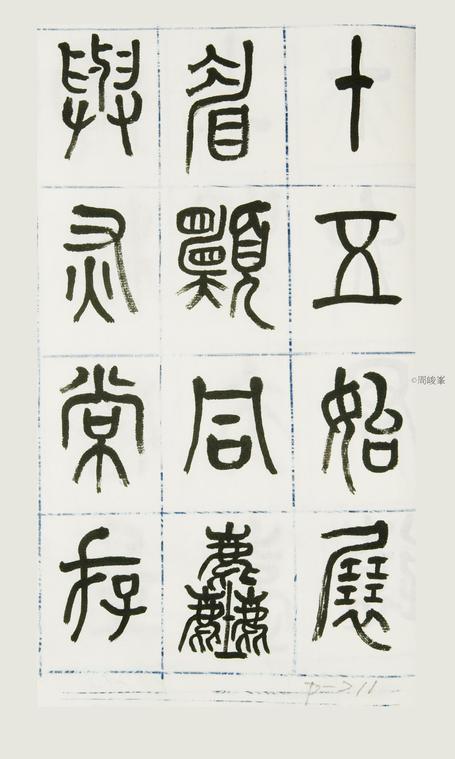 十五始展
眉願同塵
與灰常存
©周峻峯
P=211